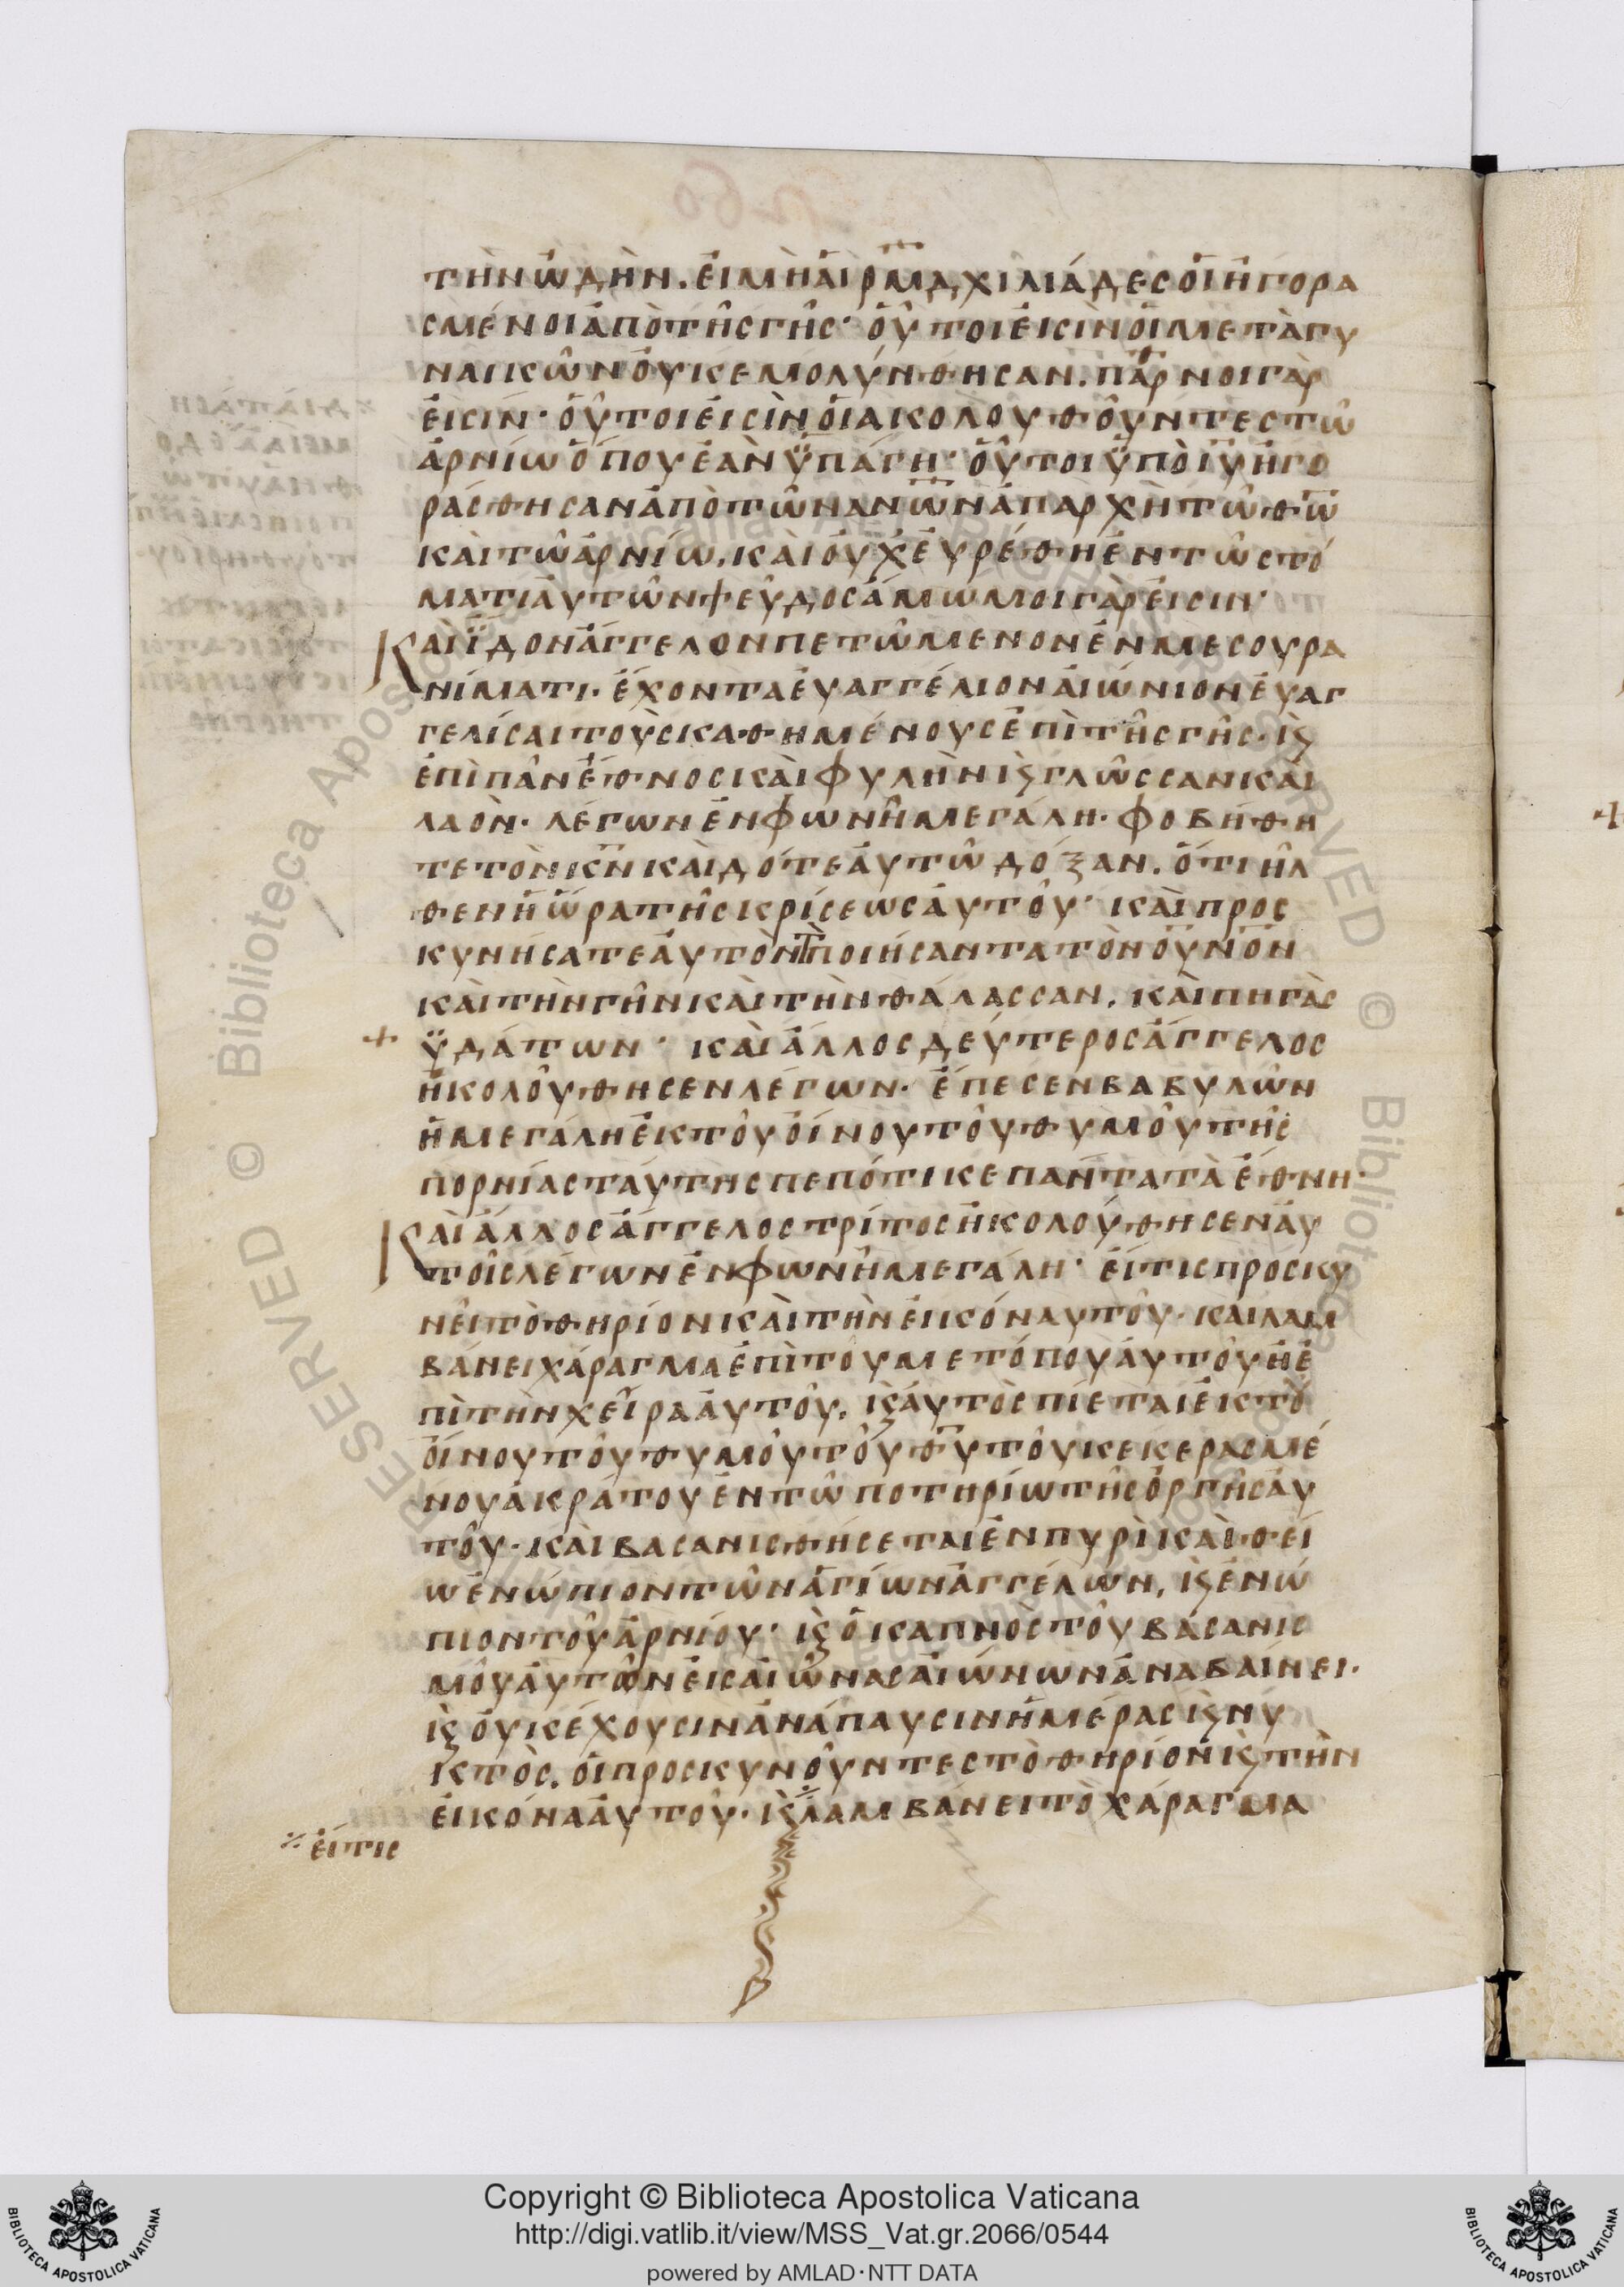 τὴν ὠδὴν. εἰ μὴ αἱ ρ̅μ̅δ̅ χιλιάδες οἱ ἠγορα
σμένοι ἀπὸ τῆς γῆς· οὗτοι εἰσὶν οἳ μετὰ γυ
ναικῶν οὐκ ἐμολύνθησαν. παρθνοι γάρ
εἰσιν· οὗτοι εἰσὶν οἱ ἀκολουθοῦντες τῶ
ἀρνίω ὅπου ἐὰν ὑπάγη· οὗτοι ὑπὸ ι̅υ̅ ἠγο
ράσθησαν ἀπὸ τῶν α̅ν̅ω̅ν̅ ἀπαρχὴ τῶ θ̅ω̅
καὶ τῶ ἀρνίω. καὶ οὐχ εὑρέθη ἐν τῶ στό
ματι αὐτῶν ψεῦδος ἄμωμοι γάρ εἰσιν·
Καὶ ἴδον ἄγγελον πετώμενον ἐν μεσουρα
νίματι. ἔχοντα εὐαγγέλιον αἰώνιον εὐαγ
γελίσαι τοὺς καθημένους ἐπὶ τῆς γῆς. ϗ
ἐπὶ πᾶν ἔθνος καὶ φυλὴν ϗ γλῶσσαν καὶ
λαὸν. λέγων ἐν φωνῆ μεγάλη. φοβήθη
τε τὸν κ̅ν̅ καὶ δότε αὐτῶ δόξαν. ὅτι ἦλ
θεν ἡ ὥρα τῆς κρίσεως αὐτοῦ· καὶ προς
κυνήσατε αὐτὸν τὸν ποιήσαντα τὸν ο̅υ̅ν̅ο̅ν̅
καὶ τὴν γῆν καὶ τὴν θάλασσαν. καὶ πηγὰς
ὑδάτων· καὶ ἄλλος δεύτερος ἄγγελος
ἠκολούθησεν λέγων. ἔπεσεν βαβυλὼν
ἡ μεγάλη ἐκ τοῦ οἴνου τοῦ θυμοῦ τῆς
πορνίας ταύτης πεπότικε πάντα τὰ ἔθνη.
Καὶ ἄλλος ἄγγελος τρίτος ἠκολούθησεν αὐ
τοῖς λέγων ἐν φωνῆ μεγάλη· εἴ τις προσκυ
νεῖ τὸ θηρίον καὶ τὴν εἰκόνα αὐτοῦ. καὶ λαμ
βάνει χάραγμα ἐπὶ τοῦ μετόπου αὐτοῦ ἢ ἐ
πὶ τὴν χεῖρα αὐτοῦ. ϗ αὐτὸς πίεται ἐκ τοῦ
οἴνου τοῦ θυμοῦ τοῦ θ̅υ̅ τοῦ κεκερασμέ
νου ἀκράτου ἐν τῶ ποτηρίω τῆς ὀργῆς αὐ
τοῦ. καὶ βασανισθήσεται ἐν πυρὶ καὶ θεί
ω ἐνώπιον τῶν ἁγίων ἀγγέλων, ϗ ἐνώ
πιον τοῦ ἀρνίου· ϗ ὁ καπνὸς τοῦ βασανις
μοῦ αὐτῶν εἰς αἰῶνας αἰώνων ἀναβαίνει.
ϗ οὐκ ἔχουσιν ἀνάπαυσιν ἡμέρας ϗ νυ
κτὸς. οἱ προσκυνοῦντες τὸ θηρίον ϗ τὴν
εἰκόνα αὐτοῦ. ϗ ⁒ λαμβάνει τὸ χάραγμα
⁒ εἴ τις
Copyright © Biblioteca Apostolica Vaticana
http://digi.vatlib.it/view/MSS_Vat.gr.2066/0544
powered by AMLAD·NTT DATA
BIBLIOTECA APOSTOLICA VATICANA
BIBLIOTECA APOSTOLICA VATICANA